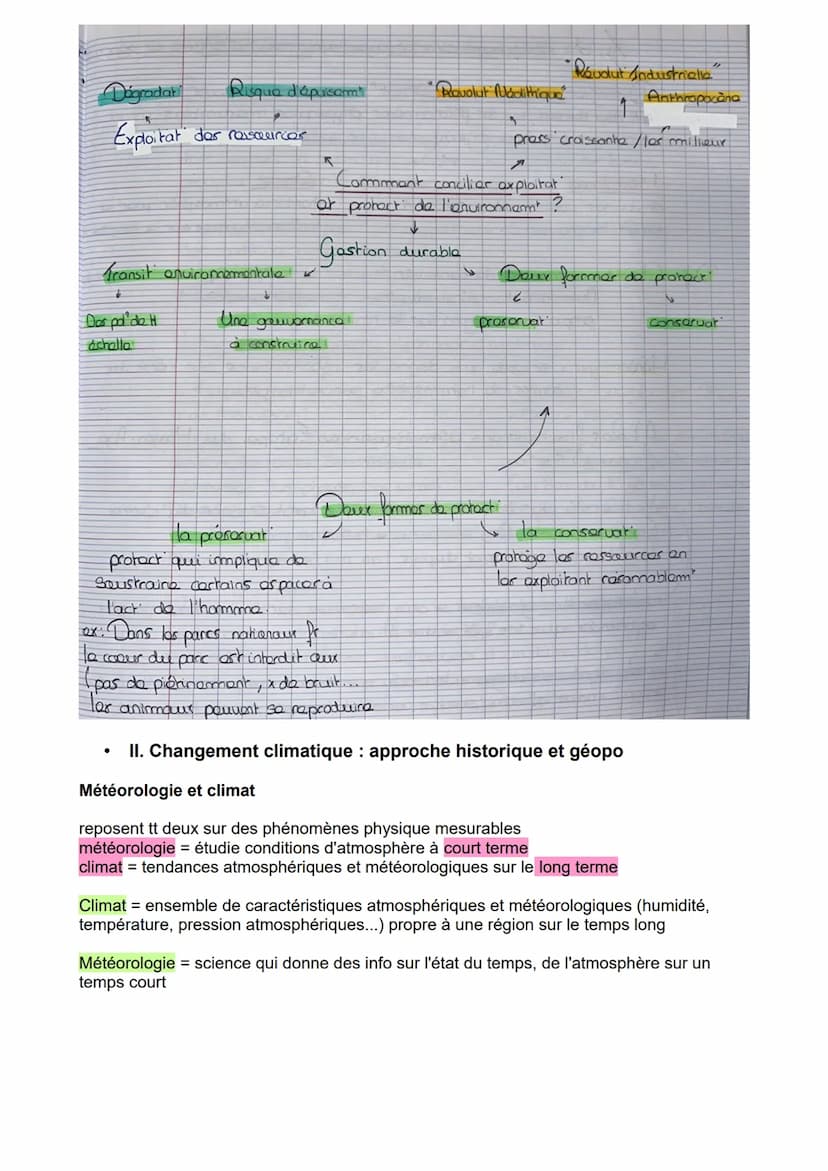 "Révolut° Industrielle"
Dégradat°
Risque d'épuisemt
"Révolut° Néolithique"
Anthropocène
Exploitat° des ressources
press° croissante / les milieux
Commment concilier exploitat°
et protect° de l'environnemt ?
Gestion durable
Transit° environnementale
Deux formmes de protect°
Des pol° de
échelle
Une gouvernance
à construire
préservat°
conservat°
Deux formes de protect°
la préservat°
la conservat°
protect° qui implique de
soustraire certains espaces à
l'act° de l'homme.
protège les ressources en
les exploitant raisonnablemt
ex: Dans les parcs nationaux fr
le coeur du parc est interdit aux
(pas de piétinemment, x de bruit...
les animaux peuvent se reproduire
• II. Changement climatique : approche historique et géopo
Météorologie et climat
reposent tt deux sur des phénomènes physique mesurables
météorologie = étudie conditions d'atmosphère à court terme
climat = tendances atmosphériques et météorologiques sur le long terme
Climat = ensemble de caractéristiques atmosphériques et météorologiques (humidité,
température, pression atmosphériques...) propre à une région sur le temps long
Météorologie = science qui donne des info sur l'état du temps, de l'atmosphère sur un
temps court